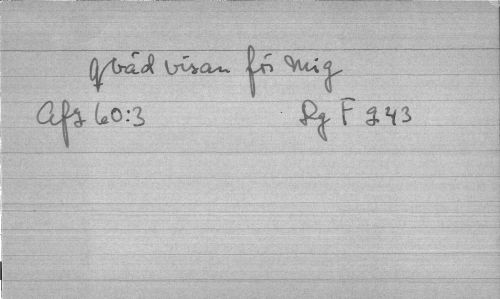 qväd visan för mig
Afz 60:3 Sg F 243